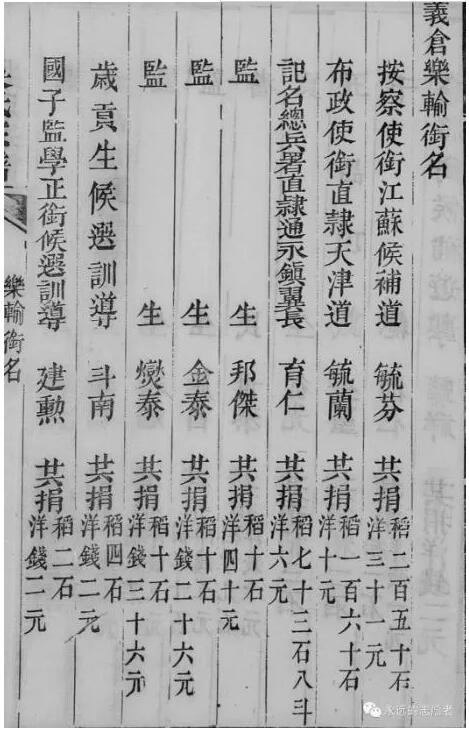 義倉樂輸銜名
按察使銜江蘇候補道 毓芬 共捐稻二百五十石洋三十一元
布政使銜直隸天津道 毓蘭 共捐稻一百六十石洋十元
記名總兵署直隸通永鎮翼長 育仁 共捐稻七十三石八斗洋六元
監生 邦傑 共捐稻十石洋四十元
監生 金泰 共捐稻十石洋錢二十六元
監生 爕泰 共捐稻十石洋錢三十六元
歲貢生候選訓導 斗南 共捐稻四石洋錢二元
國子監學正銜候選訓導 建勲 共捐稻二石洋錢二元
樂輸銜名
永远的志愿者